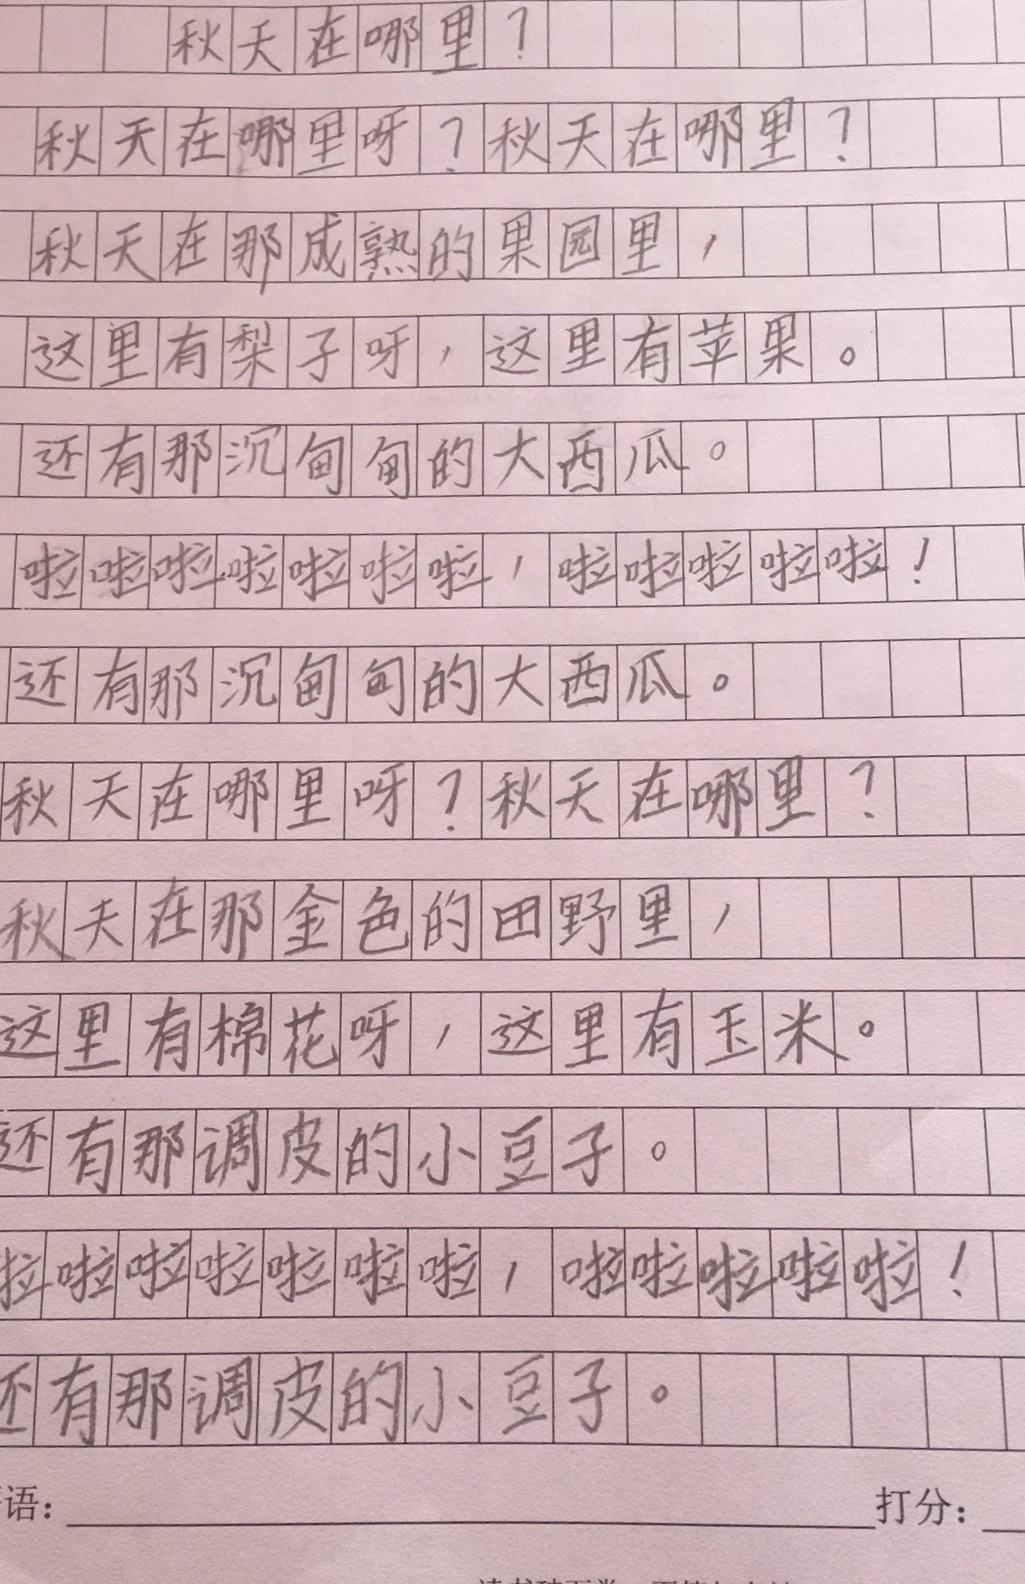 秋天在哪里？
秋天在哪里呀？秋天在哪里？
秋天在那成熟的果园里，
这里有梨子呀，这里有苹果。
还有那沉甸甸的大西瓜。
啦啦啦啦啦啦啦，啦啦啦啦啦！
还有那沉甸甸的大西瓜。
秋天在哪里呀？秋天在哪里？
秋天在那金色的田野里，
这里有棉花呀，这里有玉米。
还有那调皮的小豆子。
啦啦啦啦啦啦啦，啦啦啦啦啦！
还有那调皮的小豆子。
语：
打分：